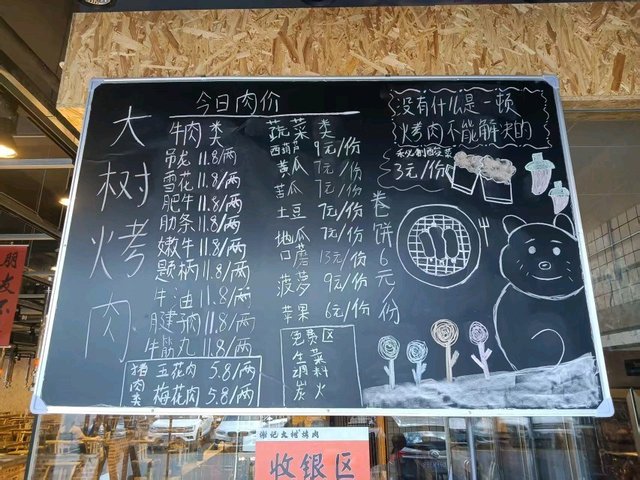 大树烤肉
今日肉价
牛肉类
吊龙 11.8/两
雪花 11.8/两
肥牛 11.8/两
肋条 11.8/两
嫩牛 11.8/两
匙柄 11.8/两
牛油 11.8/两
11.8/两
牛筋丸 11.8/两
猪肉类
五花肉 5.8/两
梅花肉 5.8/两
蔬菜类
西葫芦 9元/份
黄瓜 7元/份
苦瓜 7元/份
土豆 7元/份
地瓜 7元/份
口蘑 13元/份
菠萝 9元/份
苹果 6元/份
免费区
生菜
调料
炭火
卷饼6元/份
没有什么是一顿
烤肉不能解决的
秘制酸菜
3元/份
湘记大树烤肉
收银区
朋
友
不